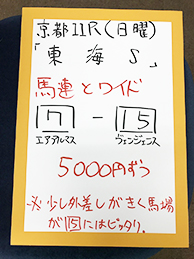 京都11R(日曜)
「東海S」
馬連とワイド
7 - 15
エアアルマス ヴェンジェンス
5000円ずつ
※少し外差しがきく馬場
が15にはピッタリ。